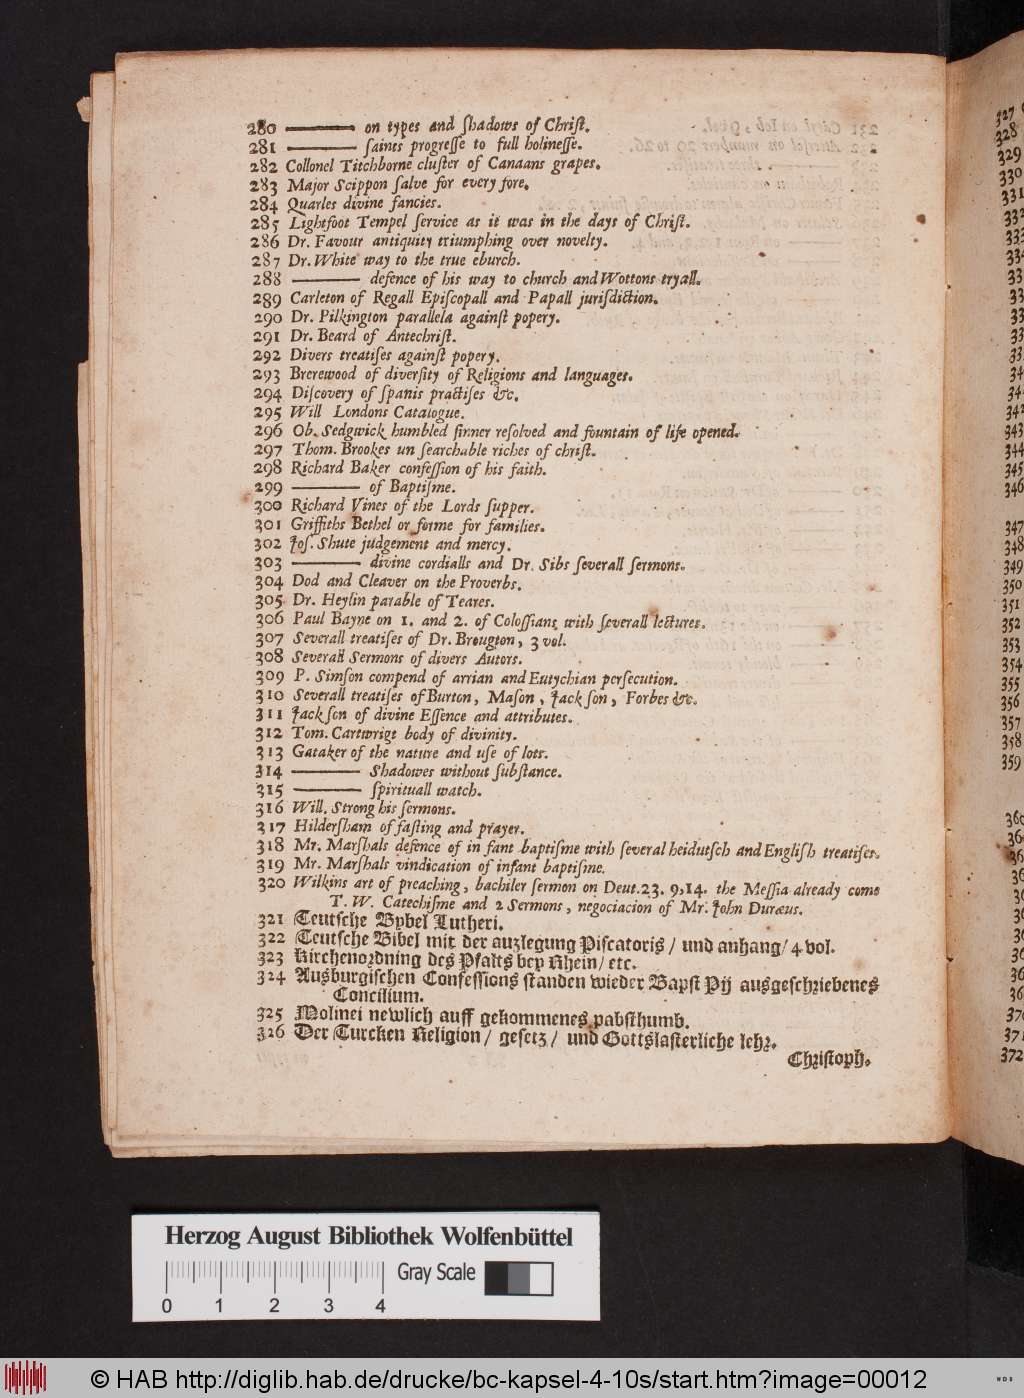 280 ——— on types and ſhadows of Chriſt.
281 ——— ſaints progreſſe to full holineſſe.
282 Collonel Titchborne cluſter of Canaans grapes.
283 Major Scippon ſalve for every ſore.
284 Quarles divine fancies.
285 Lightfoot Tempel ſervice as it was in the days of Chriſt.
286 Dr. Favour antiquity triumphing over novelty.
287 Dr. White way to the true church.
288 ——— defence of his way to church and Wottons tryall.
289 Carleton of Regall Epiſcopall and Papall juriſdiction.
290 Dr. Pilkington parallela againſt popery.
291 Dr. Beard of Antechriſt.
292 Divers treatiſes againſt popery.
293 Brerewood of diverſity of Religions and languages.
294 Diſcovery of ſpanis practiſes &c.
295 Will Londons Catalogue.
296 Ob. Sedgwick humbled ſinner reſolved and fountain of life opened.
297 Thom. Brookes un ſearchable riches of chriſt.
298 Richard Baker confeſſion of his faith.
299 ——— of Baptiſme.
300 Richard Vines of the Lords ſupper.
301 Griffiths Bethel or forme for families.
302 Joſ. Shute judgement and mercy.
303 ——— divine cordialls and Dr. Sibs ſeverall ſermons.
304 Dod and Cleaver on the Proverbs.
305 Dr. Heylin parable of Teares.
306 Paul Bayne on 1. and 2. of Coloſſians with ſeverall lectures.
307 Severall treatiſes of Dr. Brougton, 3 vol.
308 Severall Sermons of divers Autors.
309 P. Simſon compend of arrian and Eutychian perſecution.
310 Severall treatiſes of Burton, Maſon, Jackſon, Forbes &c.
311 Jackſon of divine Eſſence and attributes.
312 Tom. Cartwrigt body of divinity.
313 Gataker of the nature and uſe of lots.
314 ——— Shadowes without ſubſtance.
315 ——— ſpirituall watch.
316 Will. Strong his ſermons.
317 Hilderſham of faſting and prayer.
318 Mr. Marſhals defence of in fant baptiſme with ſeveral heidutſch and Engliſh treatiſes.
319 Mr. Marſhals vindication of infant baptiſme.
320 Wilkins art of preaching, bachiler ſermon on Deut. 23. 9,14. the Meſſia already come
T. W. Catechiſme and 2 Sermons, negociacion of Mr. John Duræus.
321 Teutſche Bybel Lutheri.
322 Teutſche Bibel mit der auzlegung Piſcatoris / und anhang / 4 vol.
323 Kirchenordning des Pfalts bey Rhein / etc.
324 Auſburgiſchen Confeſſions ſtanden wieder Bapſt Pij ausgeſchriebenes
Concilium.
325 Molinei newlich auff gekommenes pabſthumb.
326 Der Turcken Religion / geſetz / und Gottslaſterliche lehr.
Chriſtoph.
327
328
329
330
331
332
333
346
347
348
349
350
351
352
353
354
355
356
357
358
359
372
Herzog August Bibliothek Wolfenbüttel
Gray Scale
0 1 2 3 4
© HAB http://diglib.hab.de/drucke/bc-kapsel-4-10s/start.htm?image=00012